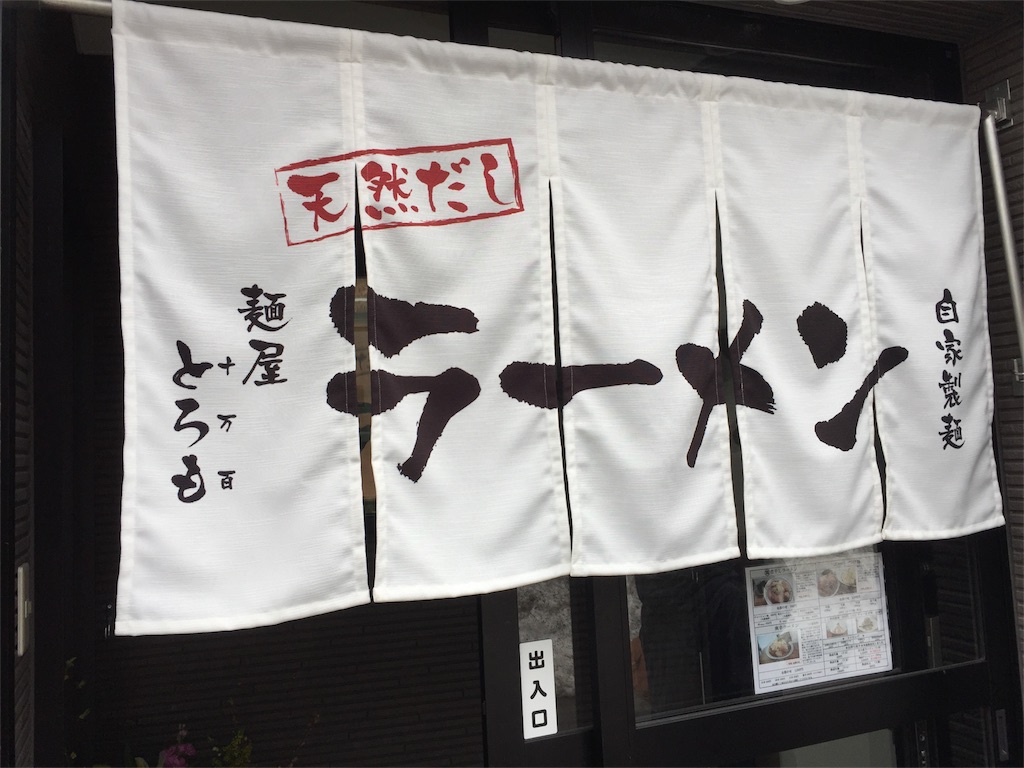 天然だし
ラーメン
自家製麺
麺屋
とろも
十万百
出入口